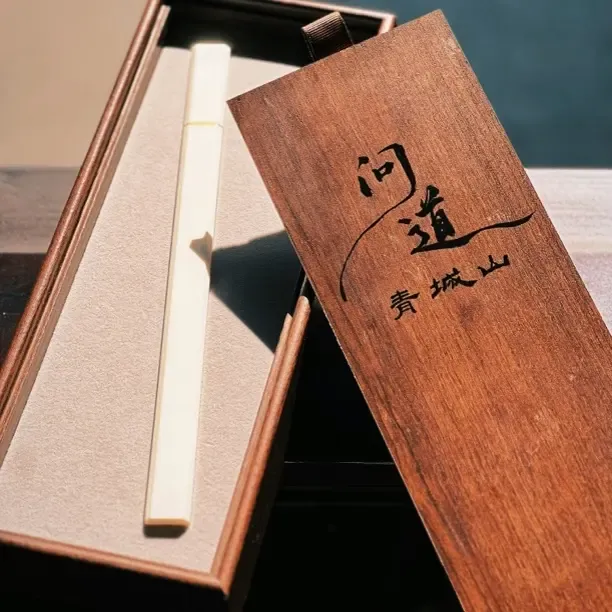 问道
青城山